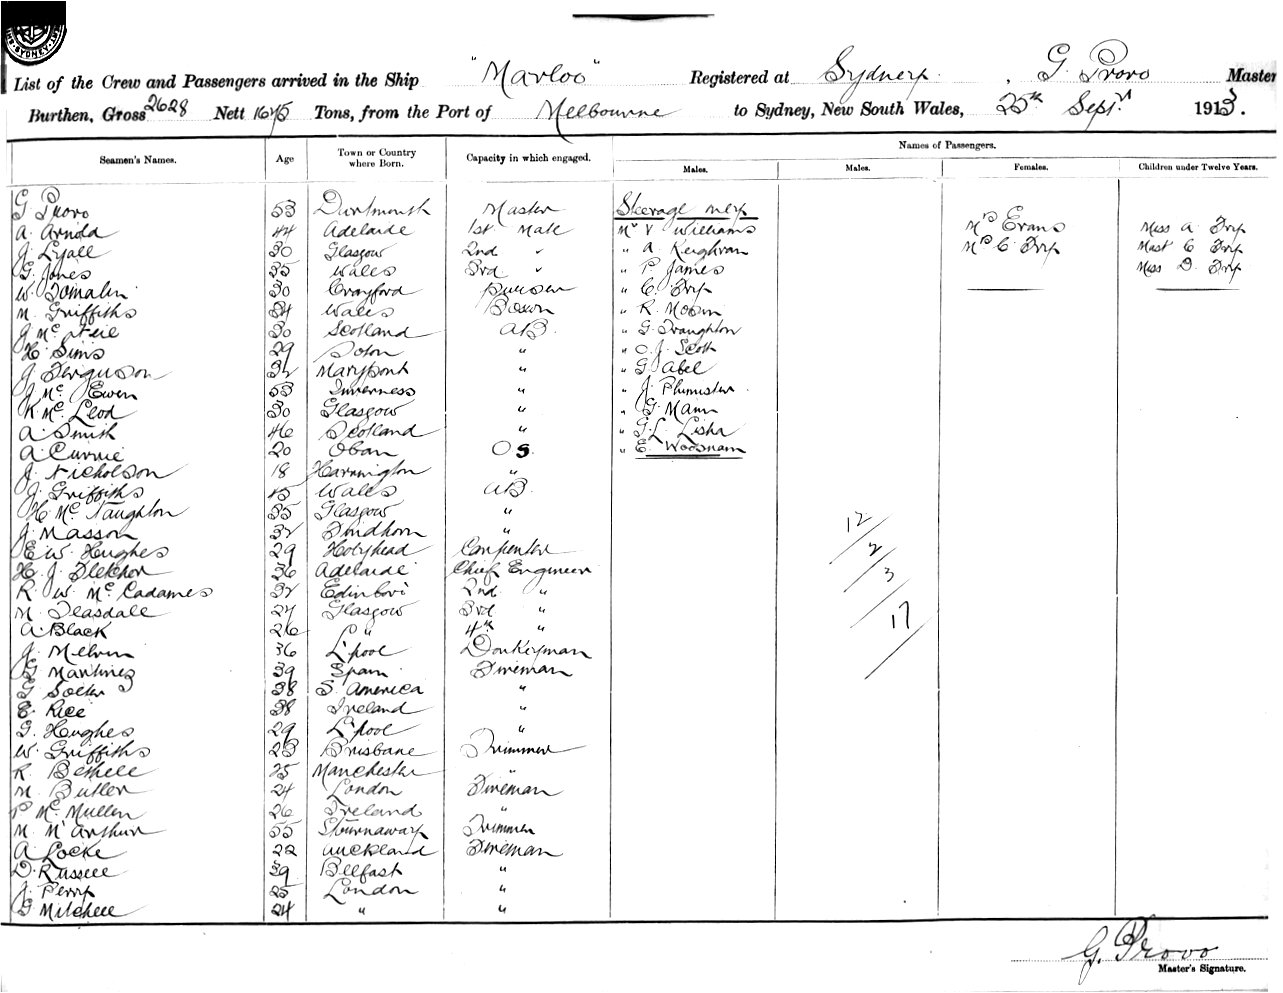 List of the Crew and Passengers arrived in the Ship "Marloo" Registered at Sydney. G. Provo Master
Burthen, Gross 2628 Nett 1675 Tons, from the Port of Melbourne to Sydney, New South Wales, 25th Septr 1913.
Names of Passengers.
Seamen's Names. Age Town or Country where Born. Capacity in which engaged. Males. Males. Females. Children under Twelve Years.
G Provo 53 Dartmouth Master Steerage only
A. Arnold 44 Adelaide 1st Mate Mr V Williams Mrs Evans Miss A Fry
J. Lyall 30 Glasgow 2nd " " A. Keighran Mrs C. Fry Mast C Fry
G. Jones 35 Wales 3rd " " P. James Miss D. Fry
W. Tomalin 30 Crayford Purser " C. Fry
M. Griffiths 34 Wales Bosun " R.
J Mc Neil 30 Scotland AB. " G. Traughton
H. Sims 29 " " O. J. Scott
J. Ferguson 32 Maryport " " G Abel
J. Mc Ewen 53 Inverness " " J. Plumister
K. Mc Leod 30 Glasgow " " G. Mann
A. Smith 46 Scotland " " G. L. Liska
A. Currie 20 Oban OS. " E. Woosnam
J. Nicholson 18 Harrington "
J. Griffiths Wales AB.
H. Mc Naughton 35 Glasgow "
J. Masson 32 Findhorn " 12
E W. Hughes 29 Holyhead Carpenter 2
H. J. Fletcher 36 Adelaide Chief Engineer 3
R. W. Mc Cadames 32 Edinboro' 2nd "
M. Teasdale 27 Glasgow 3rd " 17
A. Black 26 " 4th "
J. Melvin 36 L'pool Donkeyman
G Martinez 39 Spain Fireman
G 38 S. America "
E. Rice 38 Ireland "
G. Hughes 29 L'pool "
W. Griffiths 23 Brisbane Trimmer
R. Bethell 25 Manchester "
M. Butler 24 London Fireman
P Mc Mullen 26 Ireland "
M. McArthur 55 Stornaway Trimmer
A. Locke 22 Auckland Fireman
D. Russell 39 Belfast "
J. Perry 25 London "
G Mitchell 24 " "
G. Provo
Master's Signature.